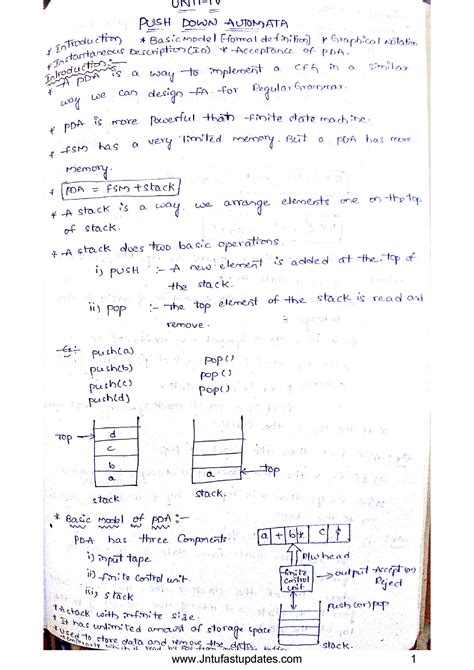 UNIT-IV
PUSH DOWN AUTOMATA
* Introduction * Basic Model [formal definition] * Graphical Notation
* Instantaneous Description (ID) * Acceptance of PDA.
Introduction:-
-A PDA is a way to implement a CFG in a similar
way we can design -FA -for Regular Grammar.
* PDA is more powerful than -finite state machine.
* -FSM has a very limited memory. But a PDA has more
memory.
* PDA = FSM + stack
* -A stack is a way we arrange elements one on the top
of stack.
* -A stack does two basic operations.
i) PUSH :- A new element is added at the top of
the stack.
ii) pop :- the top element of the stack is read and
remove.
-Ex:- push(a) pop()
push(b) pop()
push(c) pop()
push(d)
Top → d
c
b
a
stack
a ← top
stack.
* Basic model of PDA :-
PDA has three Components
i) input tape
ii) -finite control unit
iii) stack
a + b * c $
R/w head
finite control unit
→ output -Accept (or)
Reject
push (or) pop
stack.
* A stack with infinite size.
* It has unlimited amount of storage space
* used to store data and remove the data
www.Jntufastupdates.com 1